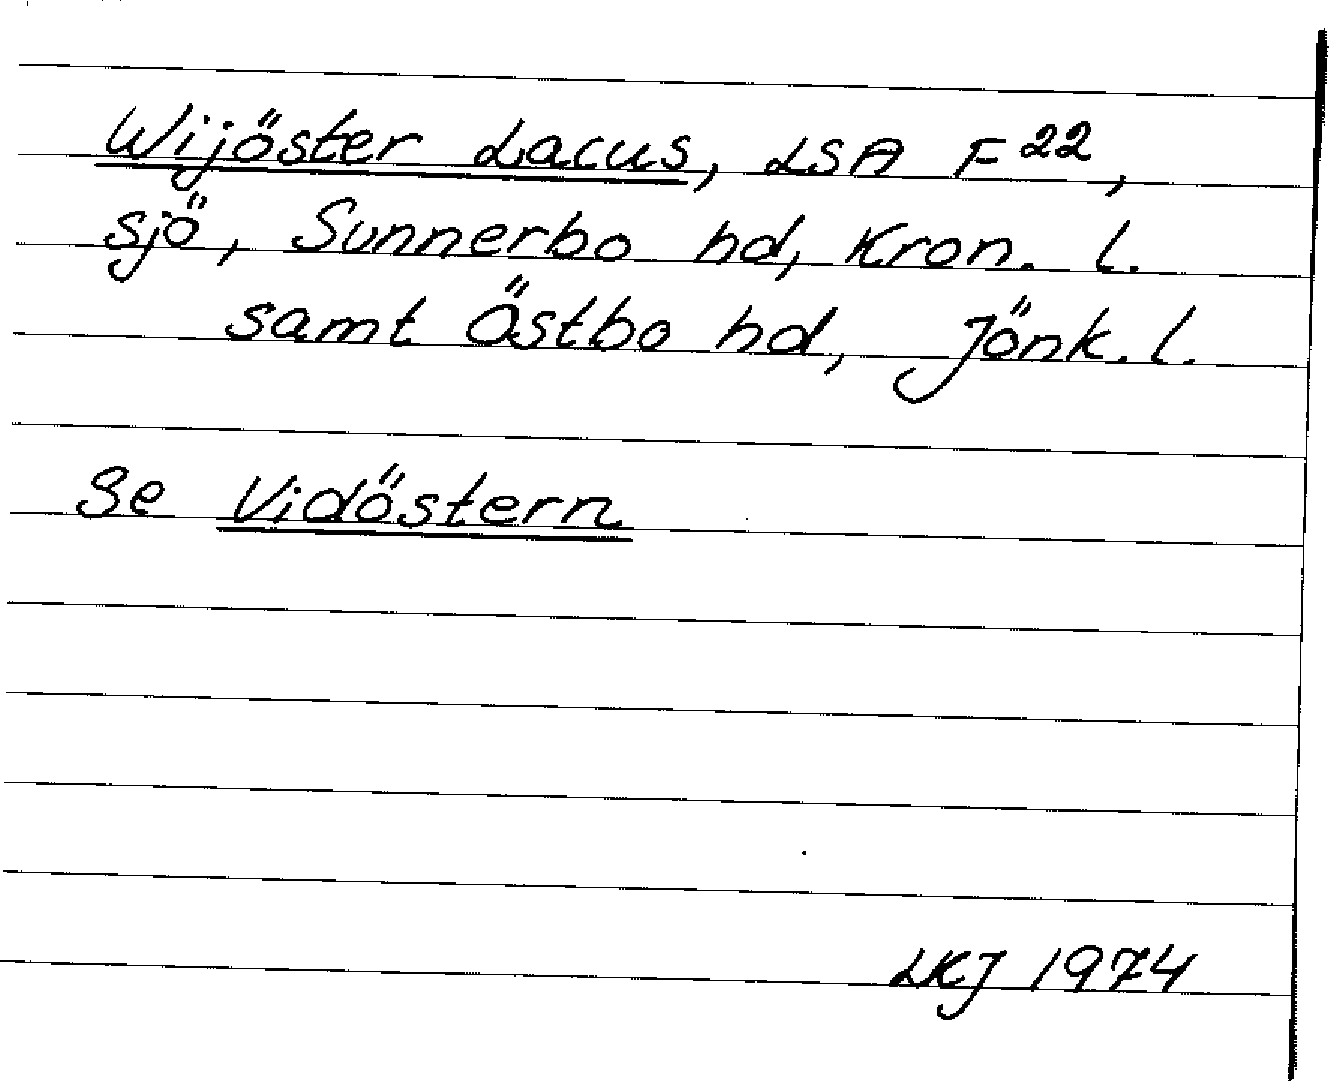 Wijöster Lacus, LSA F22,
sjö, Sunnerbo hd, Kron. l.
samt Östbo hd, Jönk. l.
Se Vidöstern
LKJ 1974